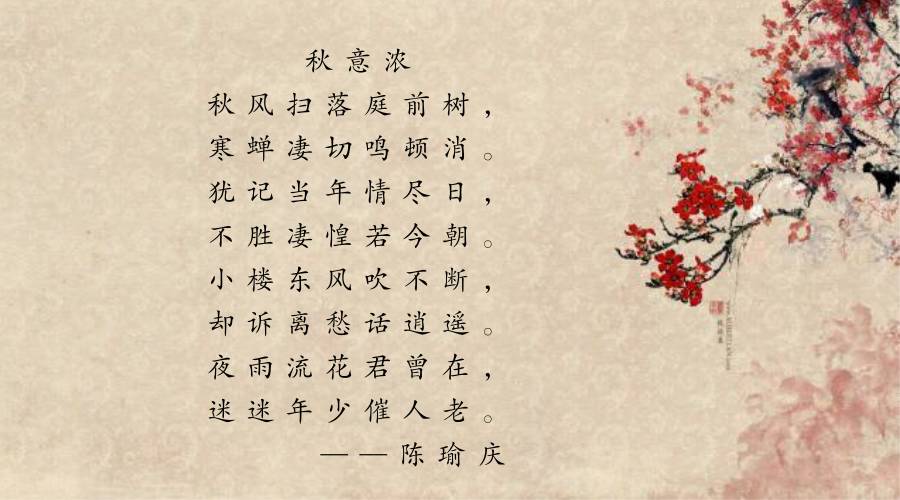 秋意浓
秋风扫落庭前树，
寒蝉凄切鸣顿消。
犹记当年情尽日，
不胜凄惶若今朝。
小楼东风吹不断，
却诉离愁话逍遥。
夜雨流花君曾在，
迷迷年少催人老。
——陈瑜庆